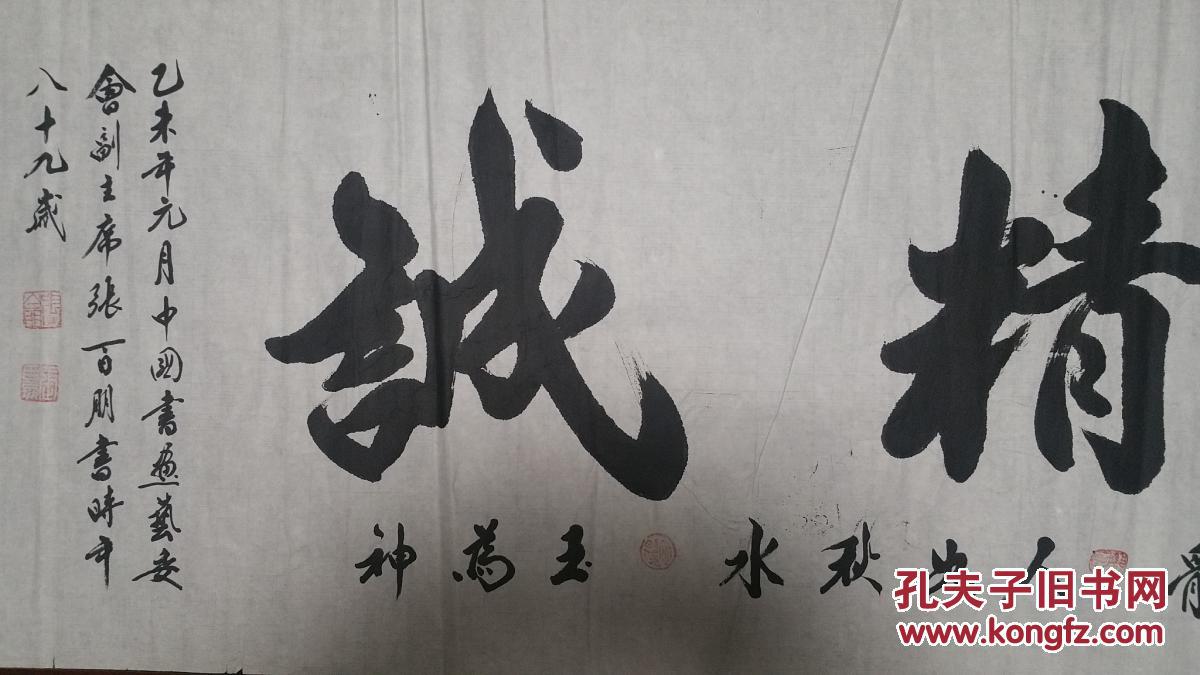 精誠
骨人如秋水玉為神
乙未年元月中國書畫藝委
會副主席張百朋書時年
八十九歲
孔夫子旧书网
www.kongfz.com